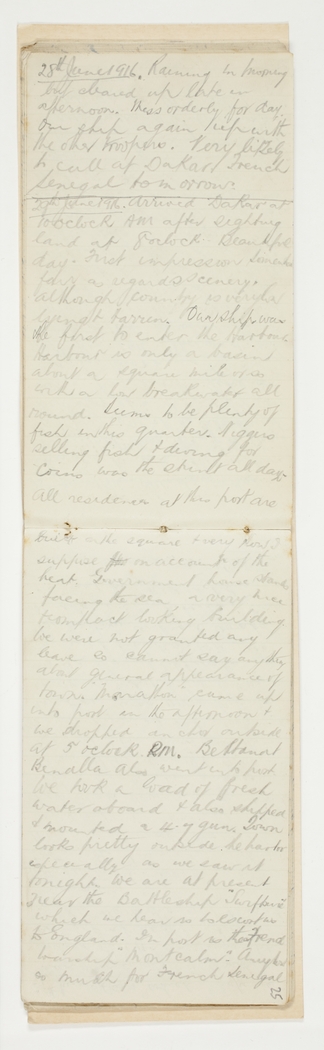 28th June 1916. Raining in morning
but cleared up late in
afternoon. Mess orderly for day.
Our ship again up with
the other troopers. Very likely
to call at Dakar French
Senegal tomorrow.
29th June 1916. Arrived Dakar at
10 oclock AM after sighting
land at 8 oclock. Beautiful
day. First impression
fair as regards scenery,
although country is very
lying & barren. Our ship was
the first to enter the harbour
Harbour is only a basin
about a square mile
with a big breakwater all
round. Seems to be plenty of
fish in this quarter. Niggers
selling fish & diving for
coins was the stunt all day.
All residences at this port are
built on the square & very
suppose on account of the
heat. Government house stands
facing the sea, a very nice
compact looking building
We were not granted any
leave so cannot say anything
about general appearance of
town. Marathon came up
into port in the afternoon &
we dropped anchor outside
at 5 oclock P.M.
Benalla also went into port
We took a load of fresh
water aboard & also shipped
& mounted a 4.7 gun. Town
looks pretty outside the harbor
especially as we saw it
tonight. We are at present
near the Battleship
which we hear is to escort us
to England. In port is the French
warship "Montcalm".
so much for French Senegal
25